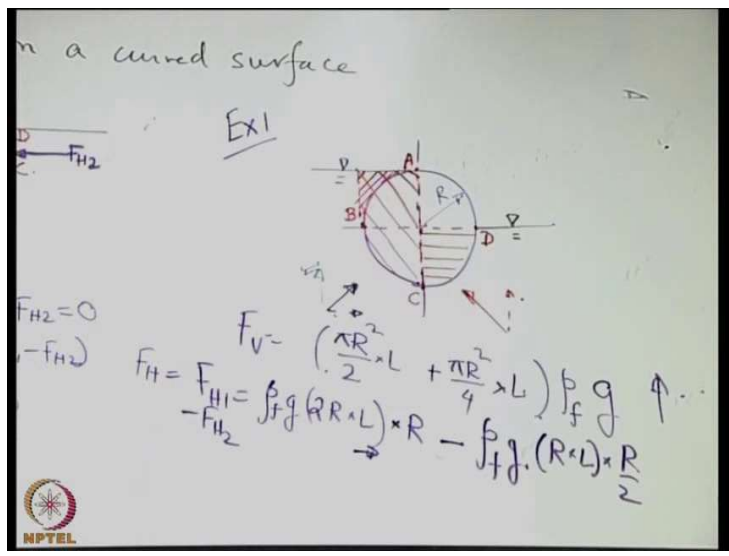 n a curved surface
D
F_{H2}
C.
Ex1
A
R
B
D
C
F_{H2}=0
, -F_{H2})
F_V = (πR²/2 × L + πR²/4 × L) ρ_f g ↑
F_H = F_{H1} - F_{H2} = ρ_f g (2R×L) × R - ρ_f g. (R×L) × R/2
NPTEL